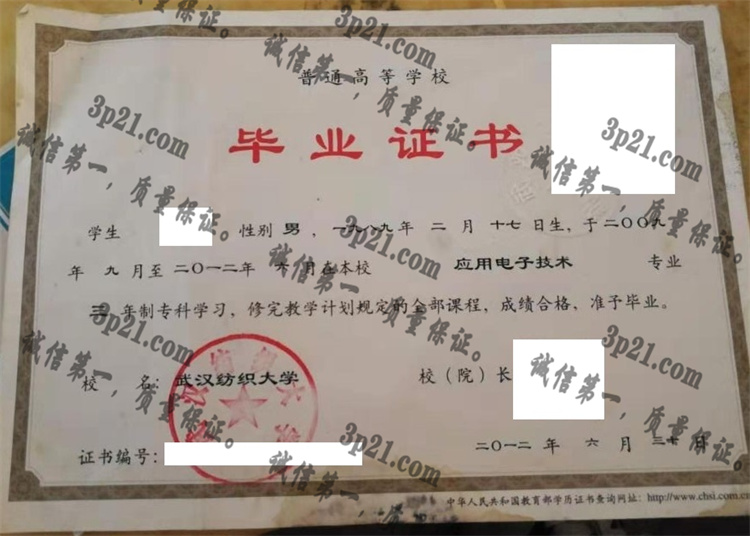 普通高等学校
毕业证书
学生 性别 男 ，一九八九年 二 月 十七日生，于二〇〇九
年 九 月至二〇一二年 六 月在本校 应用电子技术 专业
三 年制专科学习，修完教学计划规定的全部课程，成绩合格，准予毕业。
校 名：武汉纺织大学 校（院）长
二〇一二年 六 月 三十 日
证书编号：
中华人民共和国教育部学历证书查询网址：http://www.chsi.com.cn
3p21.com
诚信第一，质量保证。
3p21.com
诚信第一，质量保证。
3p21.com
诚信第一，质量保证。
3p21.com
诚信第一，质量保证。
3p21.com
诚信第一，质量保证。
3p21.com
诚信第一，质量保证。
3p21.com
诚信第一，质量保证。
3p21.com
诚信第一，质量